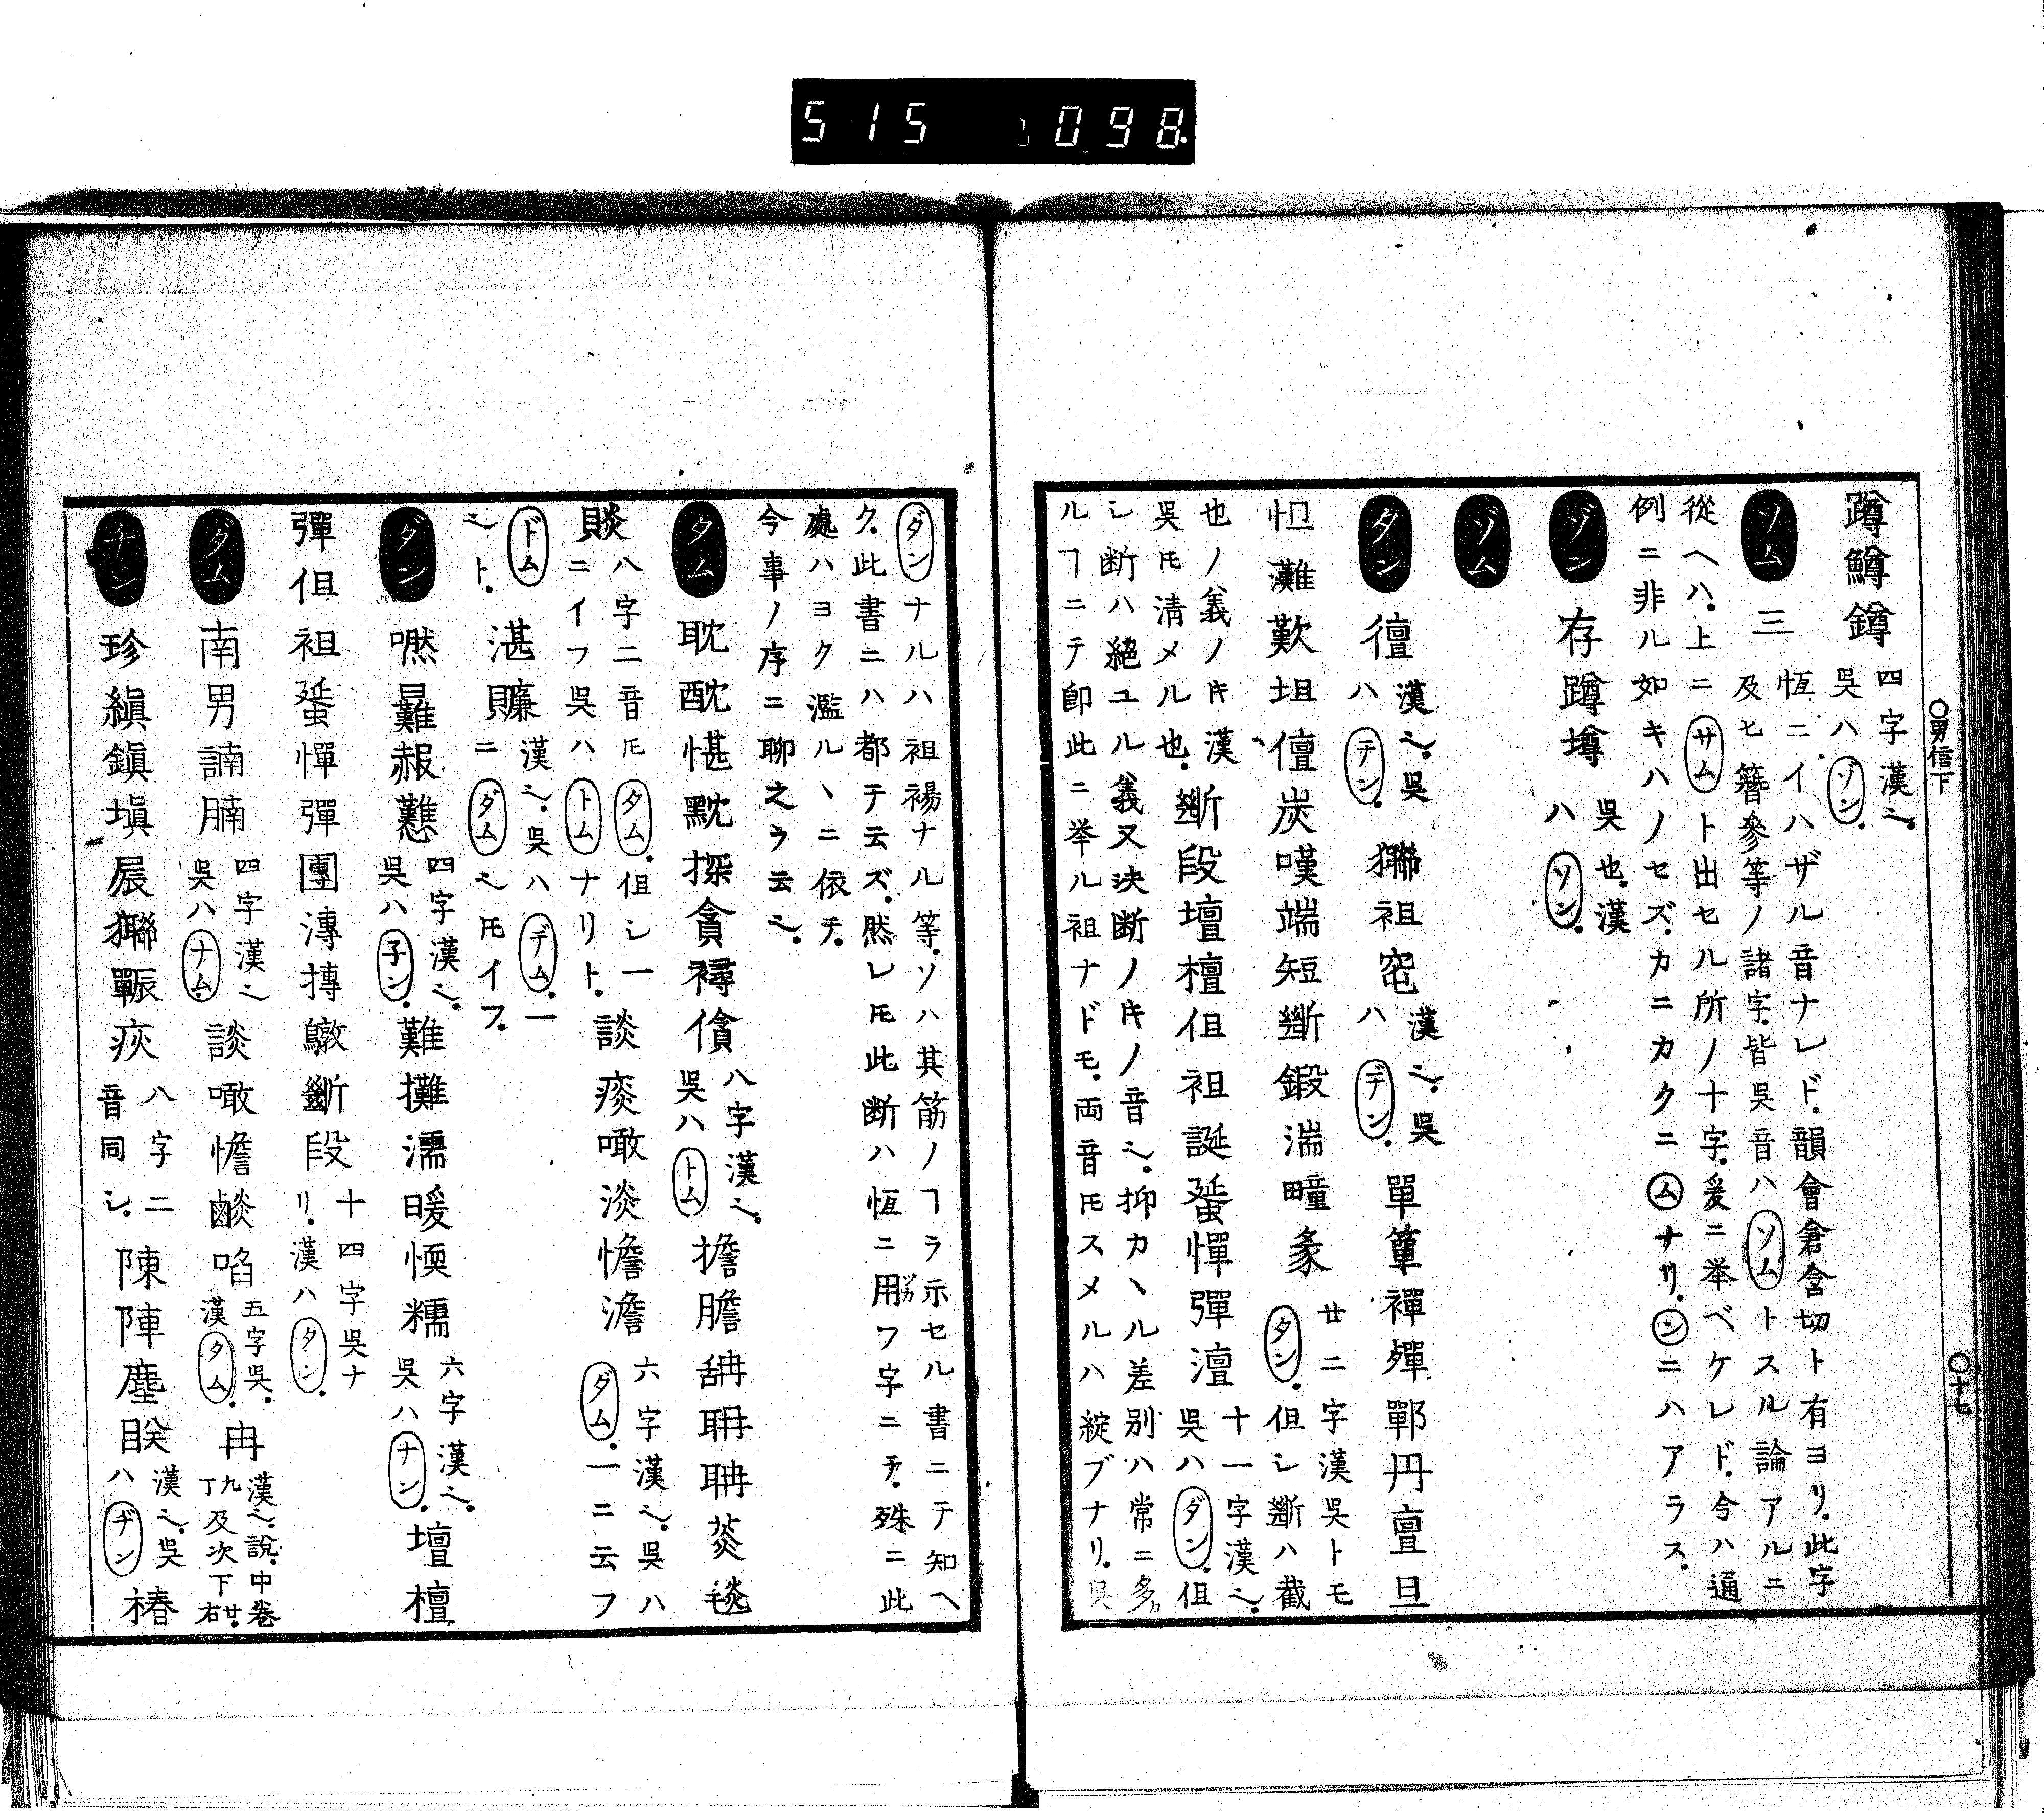 515 098
○男信下
○十七
蹲鱒鐏 四字漢也。
吳ハゾン。
ソム 三 恆ニイハザル音ナレド。韻會倉含切ト有ヨリ。此字
及ヒ簪參等ノ諸字。皆吳音ハソムトスル論アルニ
從ヘハ。上ニサムト出セル所ノ十字。爰ニ挙ベケレド。今ハ通
例ニ非ル如キハノセズ。カニカクニムナリ。ンニハアラス。
ゾン 存蹲墫 吳也。漢
ハソン。
ゾム
タン 䆄 漢也。吳
ハテン。
袒 漢也。吳
ハデン。
單簞襌殫鄲丹亶旦
灘歎坦儃炭嘆端短斷鍛湍疃彖 廿二字漢吳トモ
タン。但シ斷ハ截
也ノ義ノ𪜈漢
吳𪜈淸メル也。
斷段壇檀但袒誕蜑憚彈澶 十一字漢也。
吳ハダン。但
シ断ハ絕ユル義又決断ノ𪜈ノ音也。抑カヽル差別ハ常ニ多
ルヿニテ卽此ニ挙ル袒ナドモ。両音𪜈スメルハ綻ブナリ。吳
ダンナルハ袒裼ナル等。ソハ其筋ノヿラ示セル書ニテ知ヘ
ク。此書ニハ都テ云ズ。然レ𪜈此断ハ恆ニ用フ字ニテ。殊ニ此
處ハヨク濫ルヽニ依テ。
今事ノ序ニ聊之ヲ云也。
タム 耽酖愖黕探貪撏僋 八字漢也。
吳ハトム
擔膽 菼毯
賧 八字二音𪜈タム。但シ一
ニイフ吳ハトムナリト。
談痰噉淡憺澹 六字漢也。吳ハ
ダム。一ニ云フ
ドム
也ト。
湛 漢也。吳ハヂム。一
ニダム也𪜈イフ。
ダン 㬮難赧戁 四字漢也。
吳ハ子ン。
難攤濡暖愞糯 六字漢也。
吳ハナン。
壇檀
彈但袒蜑憚彈團漙摶 斷段 十四字吳ナ
リ。漢ハタン。
ダム 南男諵腩 四字漢也
吳ハナム。
談噉憺 啗 五字吳。
漢タム。
冉 漢也。說。中卷
九丁及次下廿右
チン 珍縝鎭塡 疢 八字二
音同シ。
陳陣塵眹 漢也。吳
ハヂン
椿